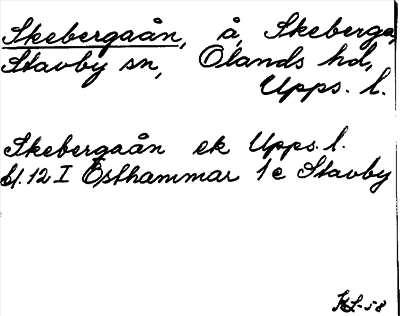 Skebergaån, å, Skeberga,
Stavby sn, Olands hd,
Upps. l.
Skebergaån ek Upps. l.
bl. 12 I Östhammar 1e Stavby